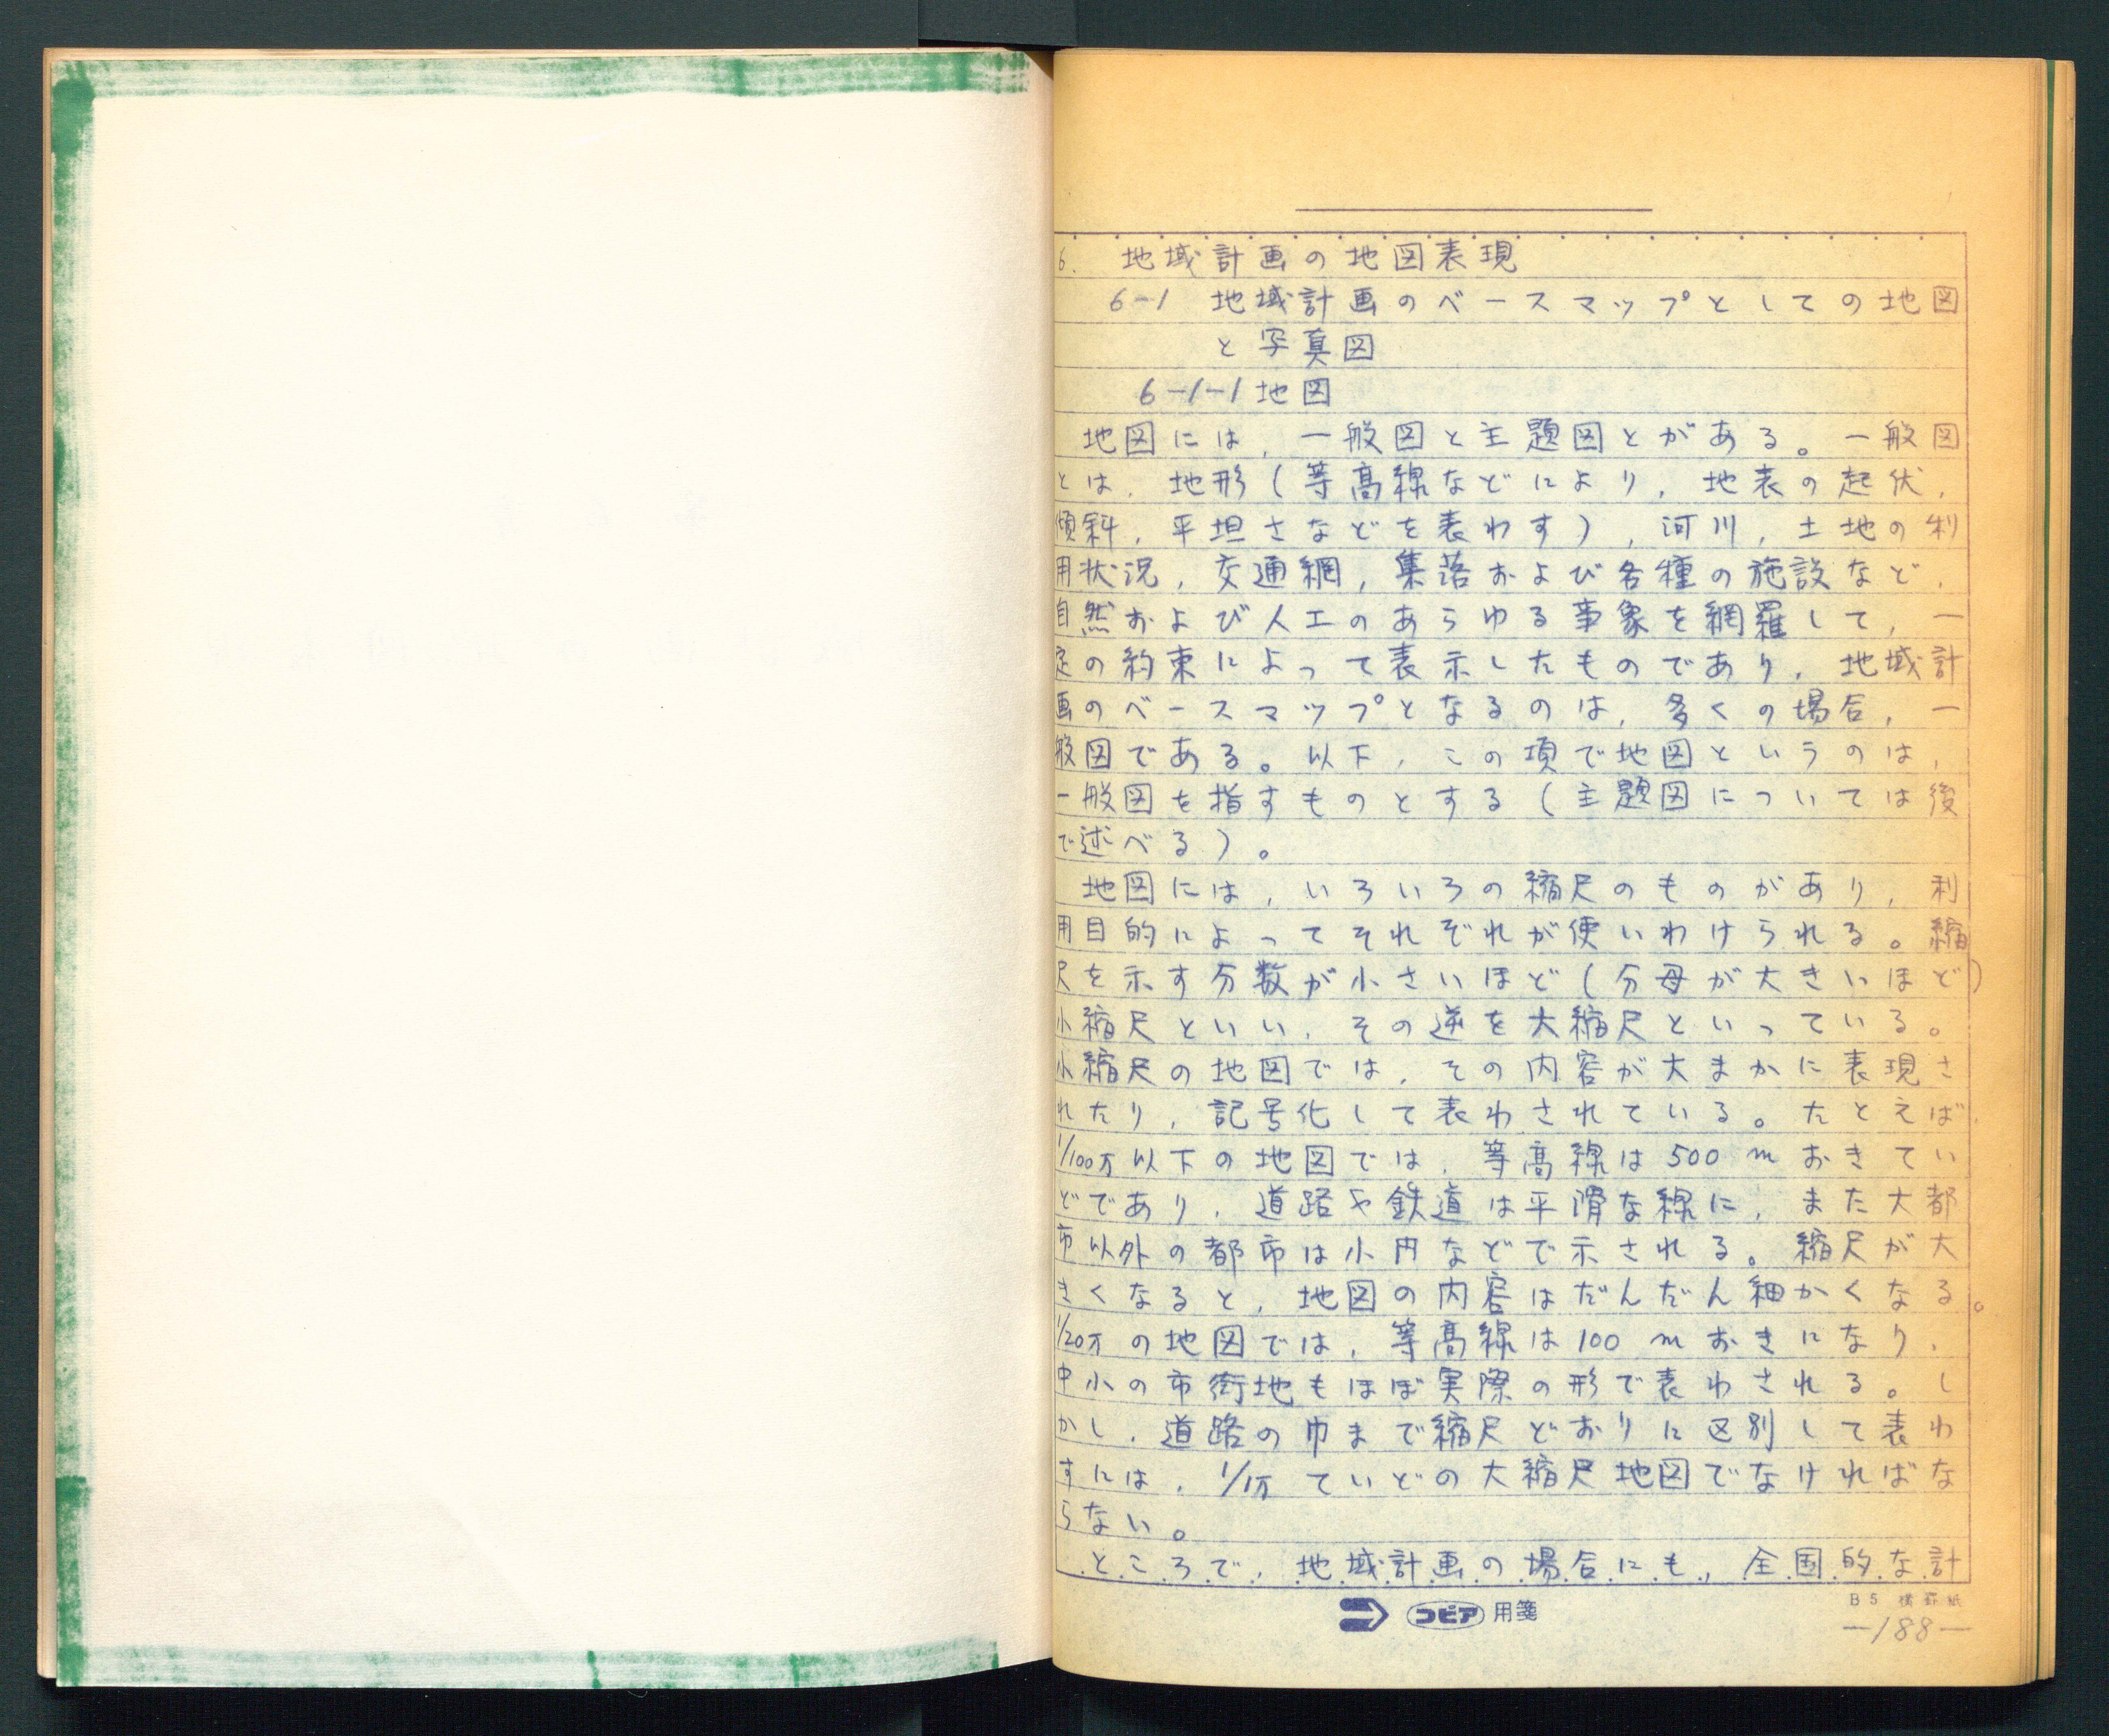 6. 地域計画の地図表現
6-1 地域計画のベースマップとしての地図
と写真図
6-1-1 地図
地図には，一般図と主題図とがある。一般図
とは，地形（等高線などにより，地表の起伏，
傾斜，平坦さなどを表わす），河川，土地の利
用状況，交通網，集落および各種の施設など，
自然および人工のあらゆる事象を網羅して，一
定の約束によって表示したものであり，地域計
画のベースマップとなるのは，多くの場合，一
般図である。以下，この項で地図というのは，
一般図を指すものとする（主題図については後
で述べる）。
地図には，いろいろの縮尺のものがあり，利
用目的によってそれぞれが使いわけられる。縮
尺を示す分数が小さいほど（分母が大きいほど）
小縮尺といい，その逆を大縮尺といっている。
小縮尺の地図では，その内容が大まかに表現さ
れたり，記号化して表わされている。たとえば，
1/100万以下の地図では，等高線は500mおきてい
どであり，道路や鉄道は平滑な線に，また大都
市以外の都市は小円などで示される。縮尺が大
きくなると，地図の内容はだんだん細かくなる。
1/20万の地図では，等高線は100mおきになり，
中小の市街地もほぼ実際の形で表わされる。し
かし，道路の巾まで縮尺どおりに区別して表わ
すには，1/1万ていどの大縮尺地図でなければな
らない。
ところで，地域計画の場合にも，全国的な計
コピア用箋
B5 横罫紙
—188—